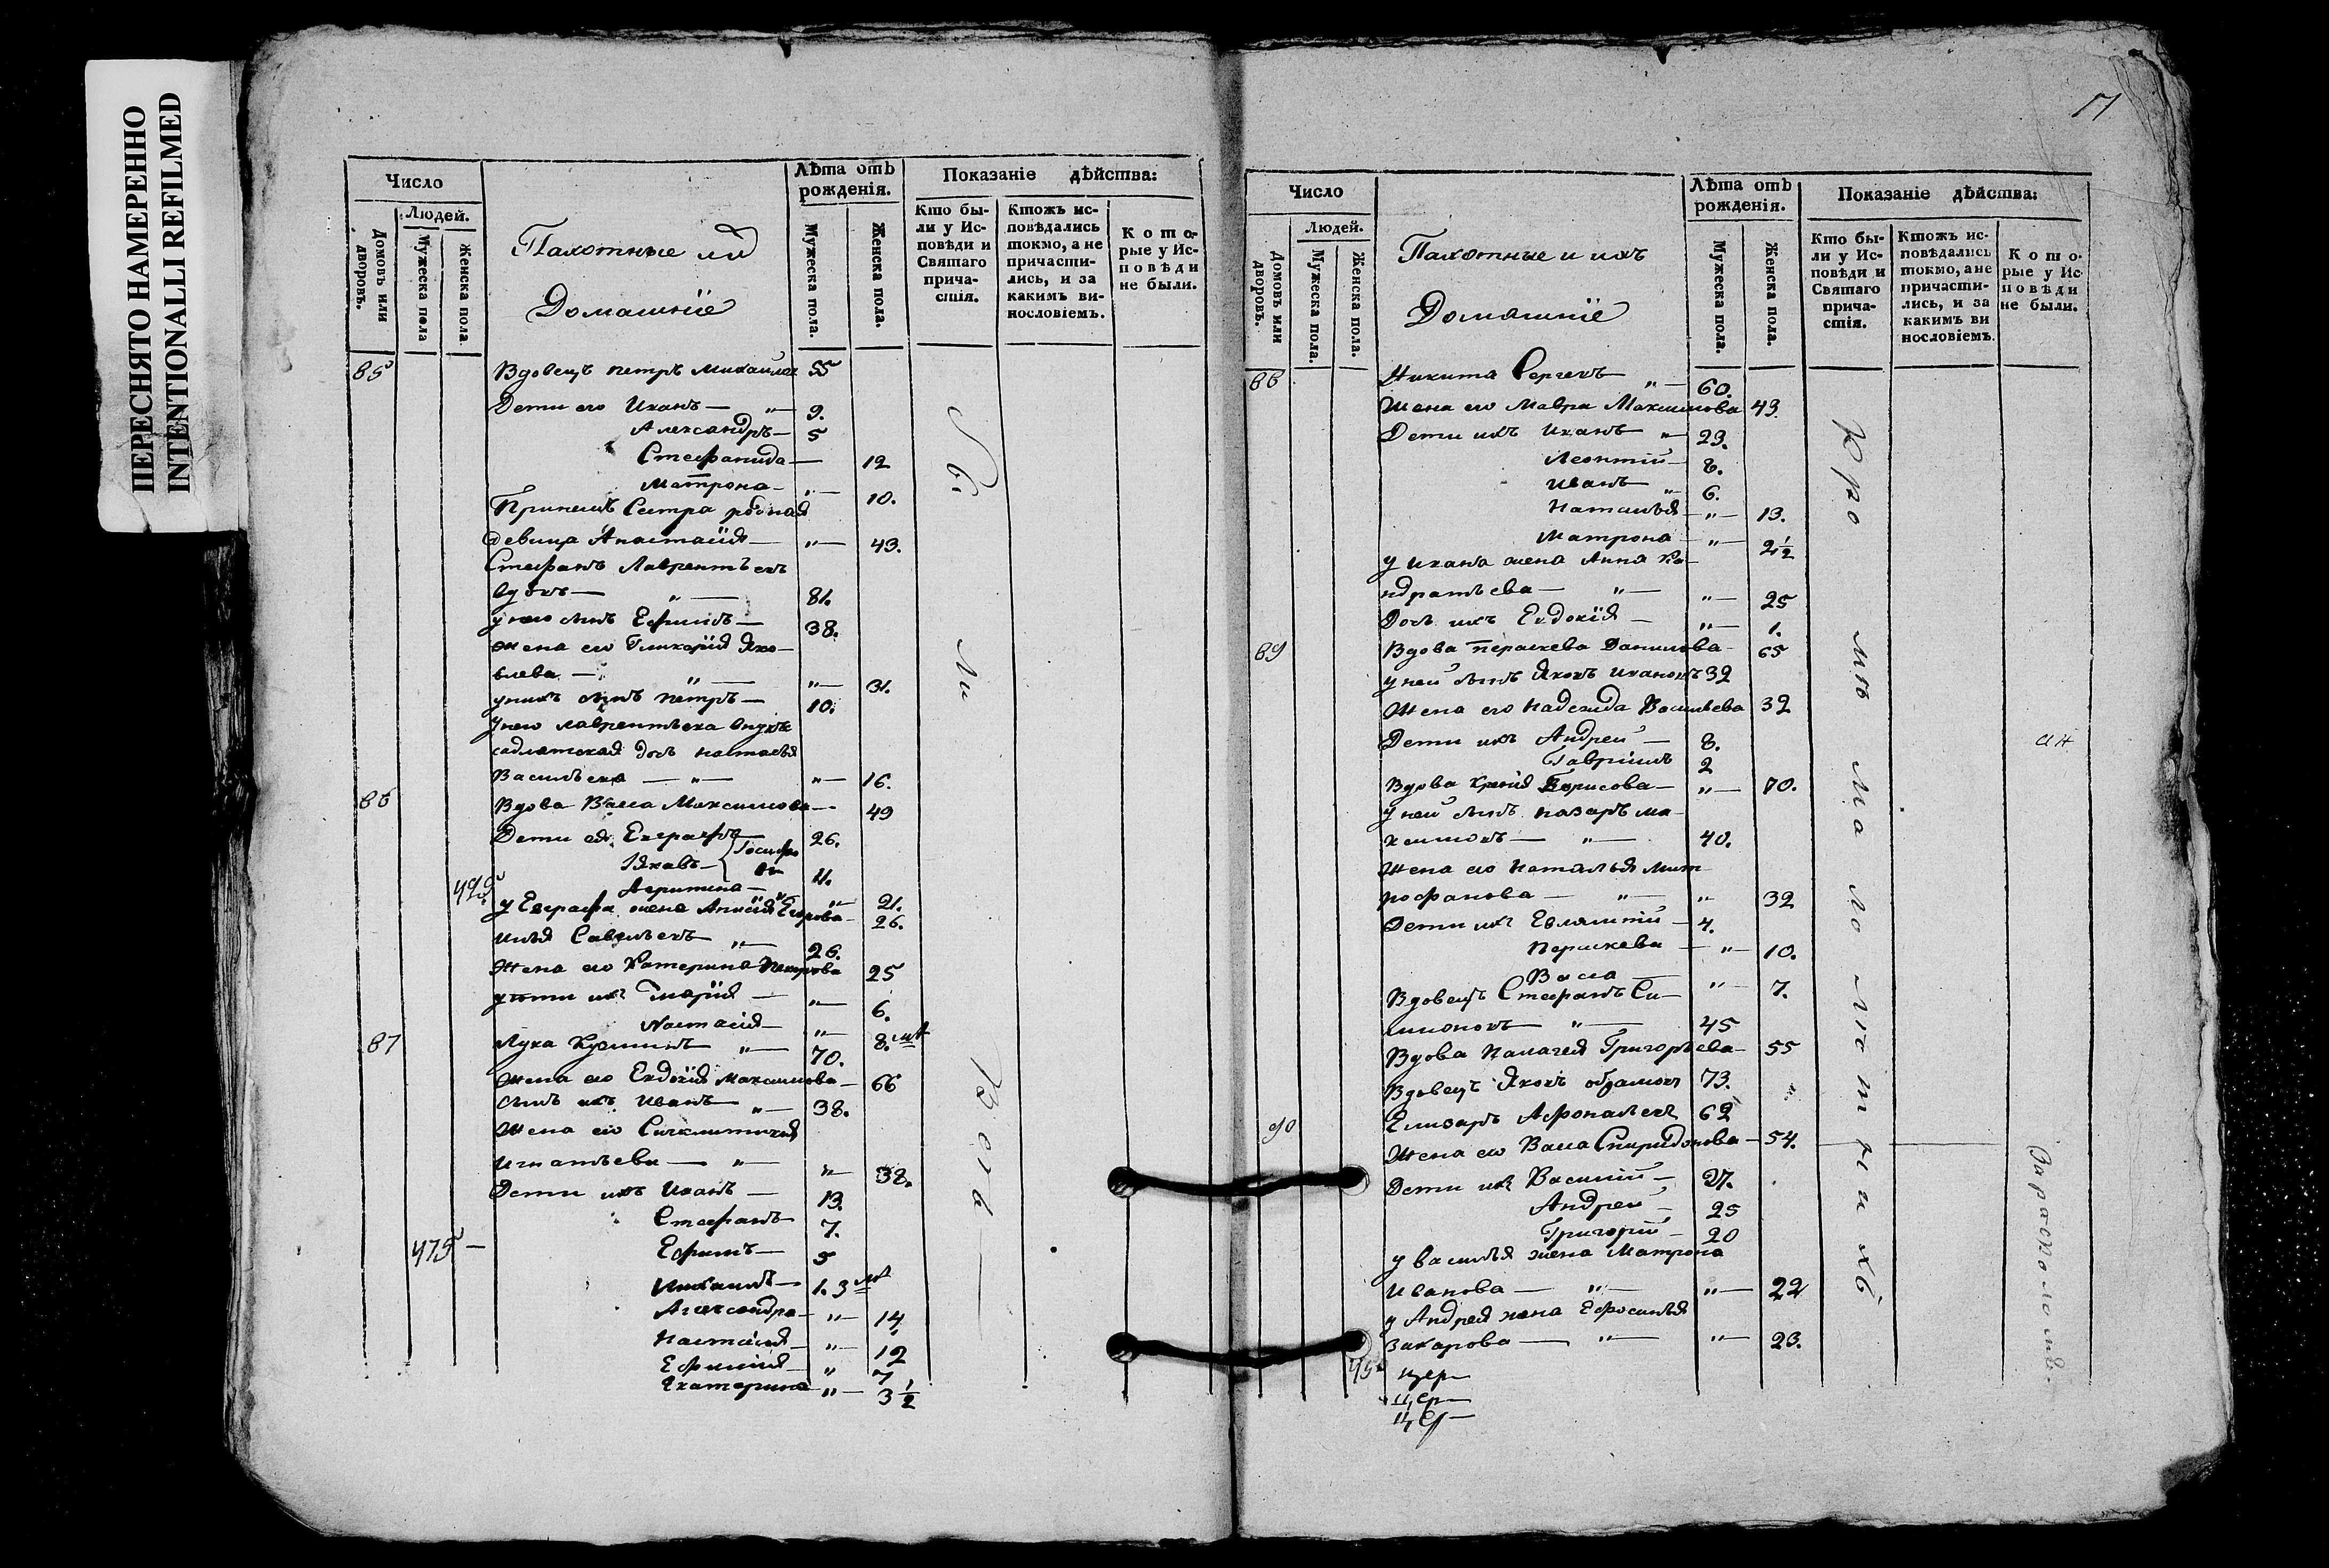 ПЕРЕСНЯТО НАМЕРЕННО
INTENTIONALLI REFILMED
Число
Людей.
Домовъ или дворовъ.
Мужеска пола
Женска пола.
Пахотные
Домашніе
Лѣта отъ рожденія.
Мужеска пола.
Женска пола.
Показаніе дѣйства:
Кто бы-
ли у Ис-
повѣди и
Святаго
прича-
стія.
Ктожъ ис-
повѣдались
токмо, а не
причасти-
лись, и за
какимъ ви-
нословіемъ.
Кото-
рые у Ис-
повѣди
не были.
85 Вдовецъ Петръ 55
Дети его Иванъ — " — 9.
Александръ — 5
Стефанида — 12
Матрона — " — 10.
Сестра родная
девица Анастасія — " — 43.
Стефанъ Лаврентьевъ
— " — 81.
у него сынъ Ефимъ — 38.
жена его Гликерія Яко-
влева — " — " — 31.
у нихъ сынъ Петръ — 10.
у него Лаврентьева внука
солдатская дочь Настасья
Васильева — " — " — 16.
86 Вдова Васса Максимова — 49
Дети ея Евграфъ 26.
Яковъ — 11.
— " 21.
495
у Евграфа жена Анисія Егорова — 26.
Илья Савельевъ " — 26.
Жена его Катерина Петрова 25
их Марія — " — 6.
Настасія — " — 8. м
87 Лука " — 70.
Жена его Евдокія Максимова — 66
сынъ ихъ Иванъ " — 38.
Жена его Синклитикія
Игнатьева — " — " — 38.
Дети ихъ Иванъ — 13.
Стефанъ 7.
475 — Ефимъ — 5
Михаилъ — 1. 3 м
Александра — " — 14
Настасія — " — 12
Ефимія — " 7
Екатерина — " — 3 1/2
Число
Людей.
Домовъ или дворовъ.
Мужеска пола.
Женска пола.
Пахотные и ихъ
Домашніе
Лѣта отъ рожденія.
Мужеска пола.
Женска пола.
Показаніе дѣйства:
Кто бы-
ли у Ис-
повѣди и
Святаго
прича-
стія.
Ктожъ ис-
повѣдались
токмо, а не
причасти-
лись, и за
какимъ ви
нословіемъ.
Кото-
рые у Ис
повѣди
не были.
88 Никита Сергеевъ " — 60.
Жена его Мавра Максимова 49
Дети ихъ Иванъ " — 23.
Леонтій — 8.
Иванъ " 6.
Наталья — " — 13.
Матрона — " — 2 1/2
у Ивана жена Анна Ко-
ндратьева — " — " — 25
Дочь ихъ Евдокія — " — 1.
89 Вдова Параскева Данилова — 65
у ней сынъ Яковъ Ивановъ 32
Жена его Надежда Васильева 32
Дети ихъ Андрей — 8.
Гавріилъ 2
Вдова Борисова — " — 70.
у ней сынъ Назаръ Ма-
ксимовъ — " — 40.
Жена его Наталья Мит-
рофанова — " — " 32
Дети их Евлампій — 4.
Параскева — " — 10.
Васса — " — 7.
Вдовецъ Стефанъ Си-
мионовъ " — 45
Вдова Палагея Григорьева — 55
Вдовецъ Яковъ 73. "
90 Елизаръ 62
Жена его Васса Спиридонова — 54.
Дети их Василій — 27.
Андрей — 25
Григорій — 20
у Василья жена Матрона
Иванова — " — " — 22
у Андрея жена Ефросинья
Захарова — " — " — 23.
Кромѣ малолѣтнихъ